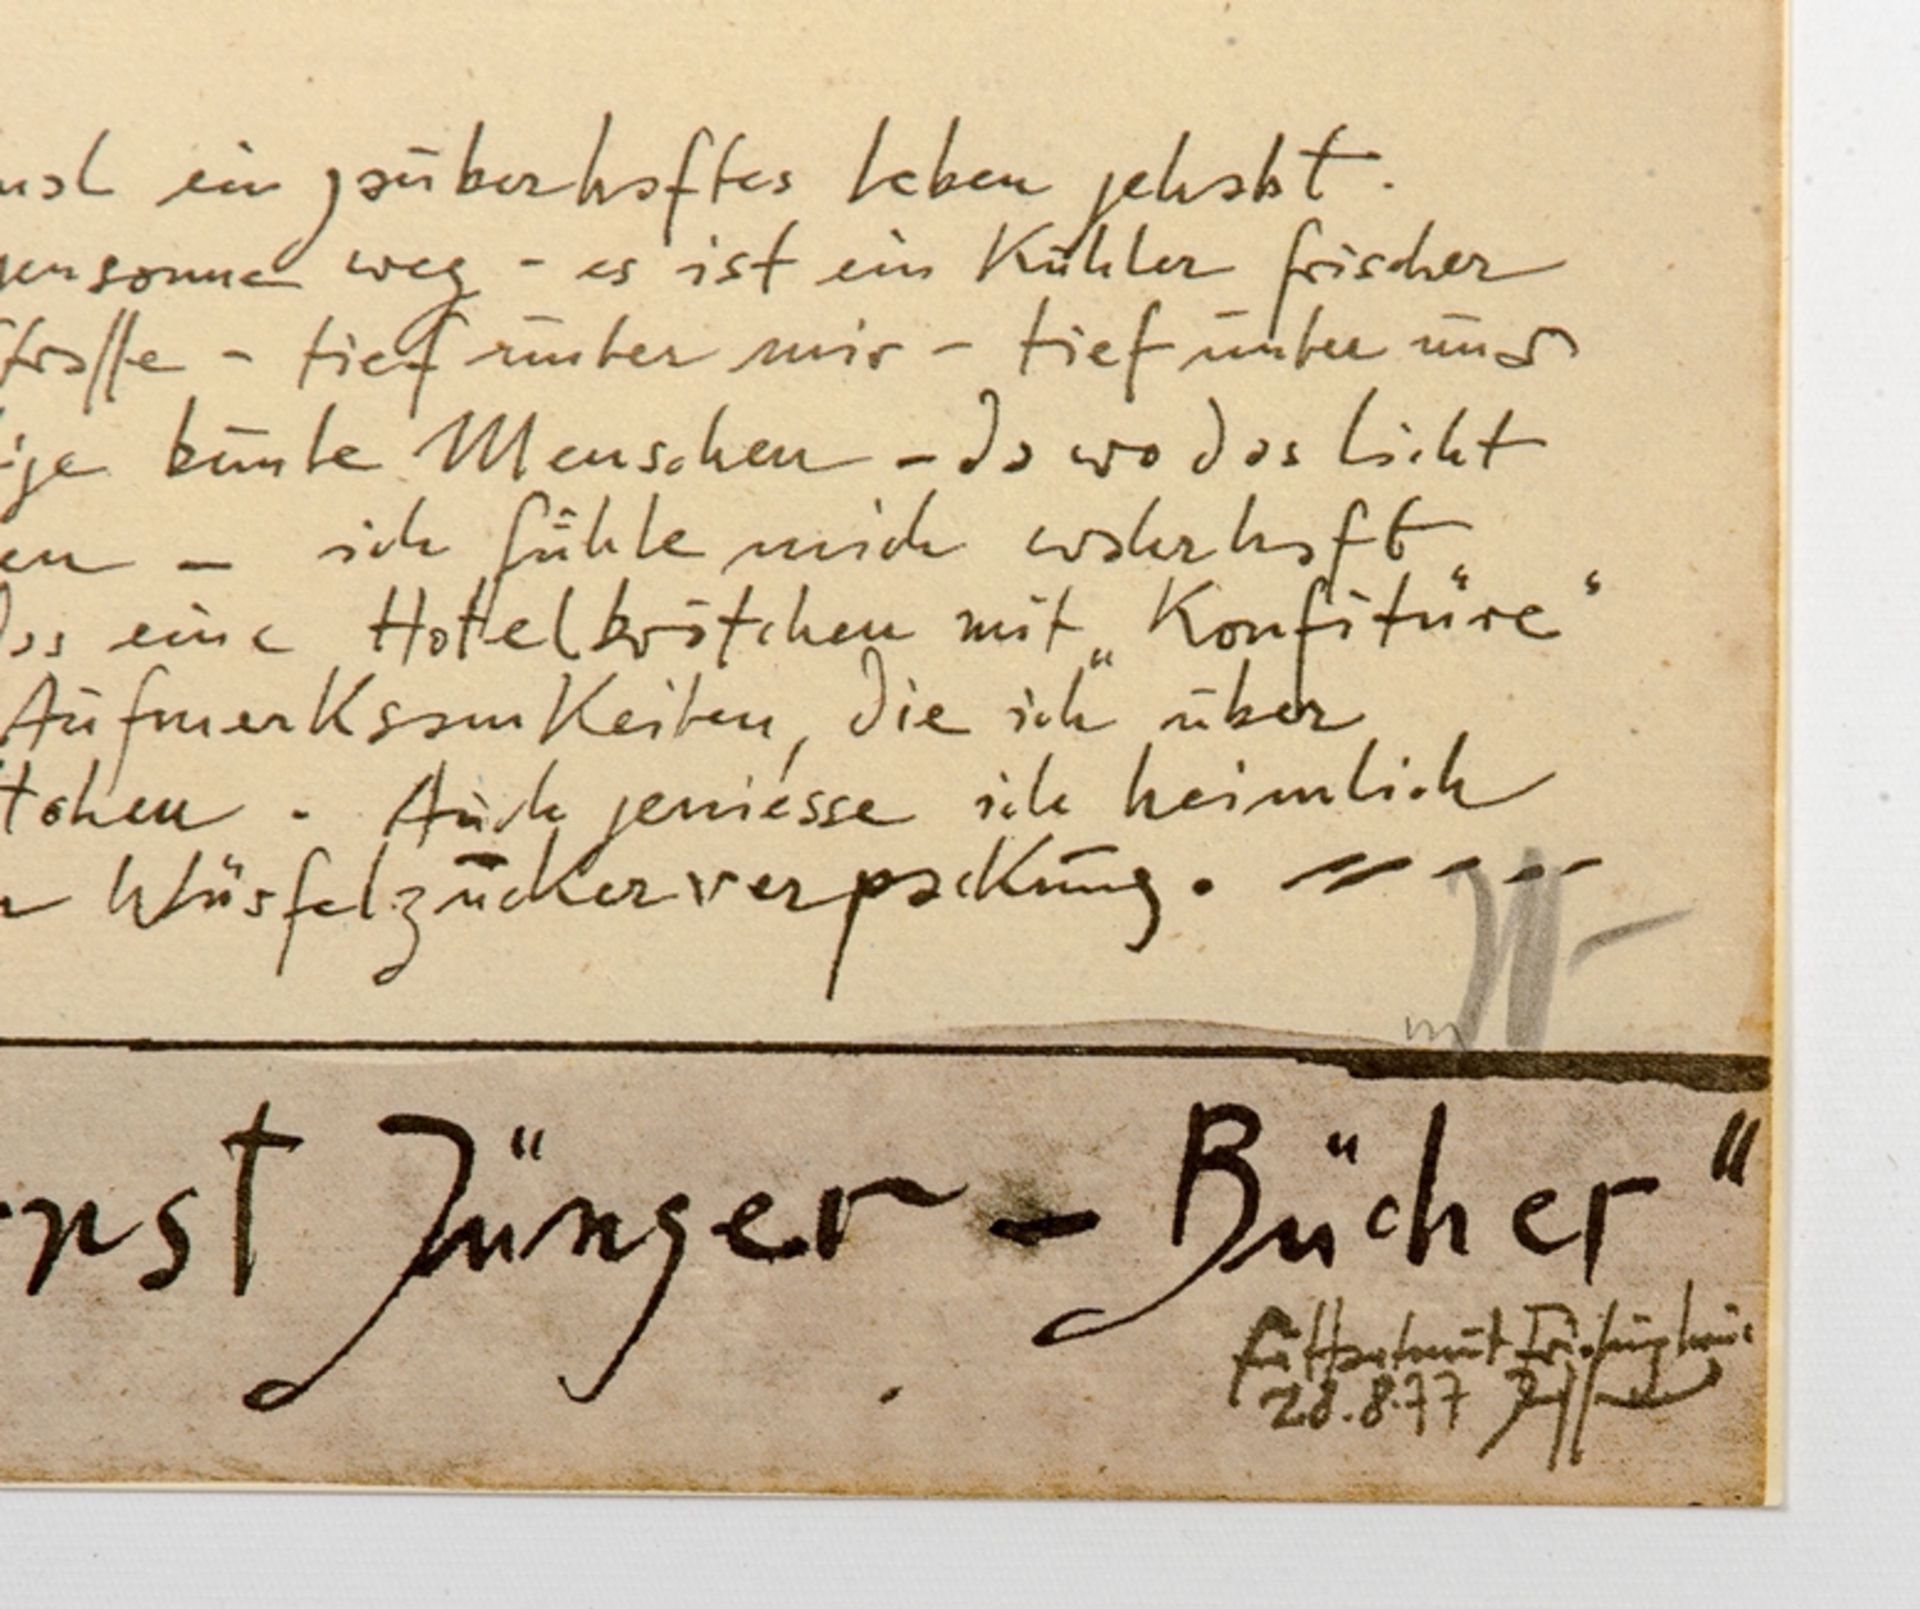 mal ein zauberhaftes Leben gehabt.
gensonne weg - es ist ein Kühler frischer
strasse - tief unter mir - tief unter uns
ige bunte Menschen - da wo das Licht
en - ich fühle mich wahrhaft
das eine Hotelbrötchen mit „Konfitüre“
Aufmerksamkeiten, die ich über
Auch geniesse ich heimlich
Würfelzuckerverpackung.
rnst Jünger - Bücher"
28.8.77